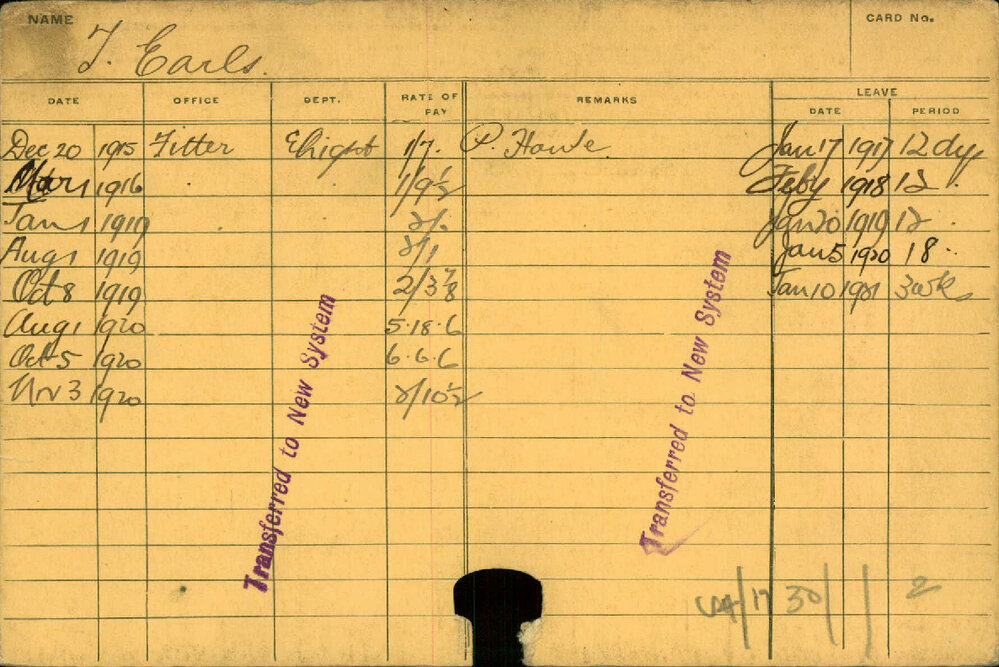 NAME
CARD No.
T. Earls.
LEAVE
DATE OFFICE DEPT. RATE OF PAY REMARKS DATE PERIOD
Dec 20 1915 Fitter 1/7. P. Howe Jan 17 1917 12 dys
Mar 1 1916 1/9½ Feby 1918 12
Jan 1 1919 2/. Jan 20 1919 12
Aug 1 1919 2/1 Jan 5 1920 18
Oct 8 1919 2/3⅞ Jan 10 1921 3 wks
Aug 1 1920 5.18.6
Oct 5 1920 6.6.6
Nov 3 1920 2/10½
Transferred to New System
Transferred to New System
/17 30/ / 2